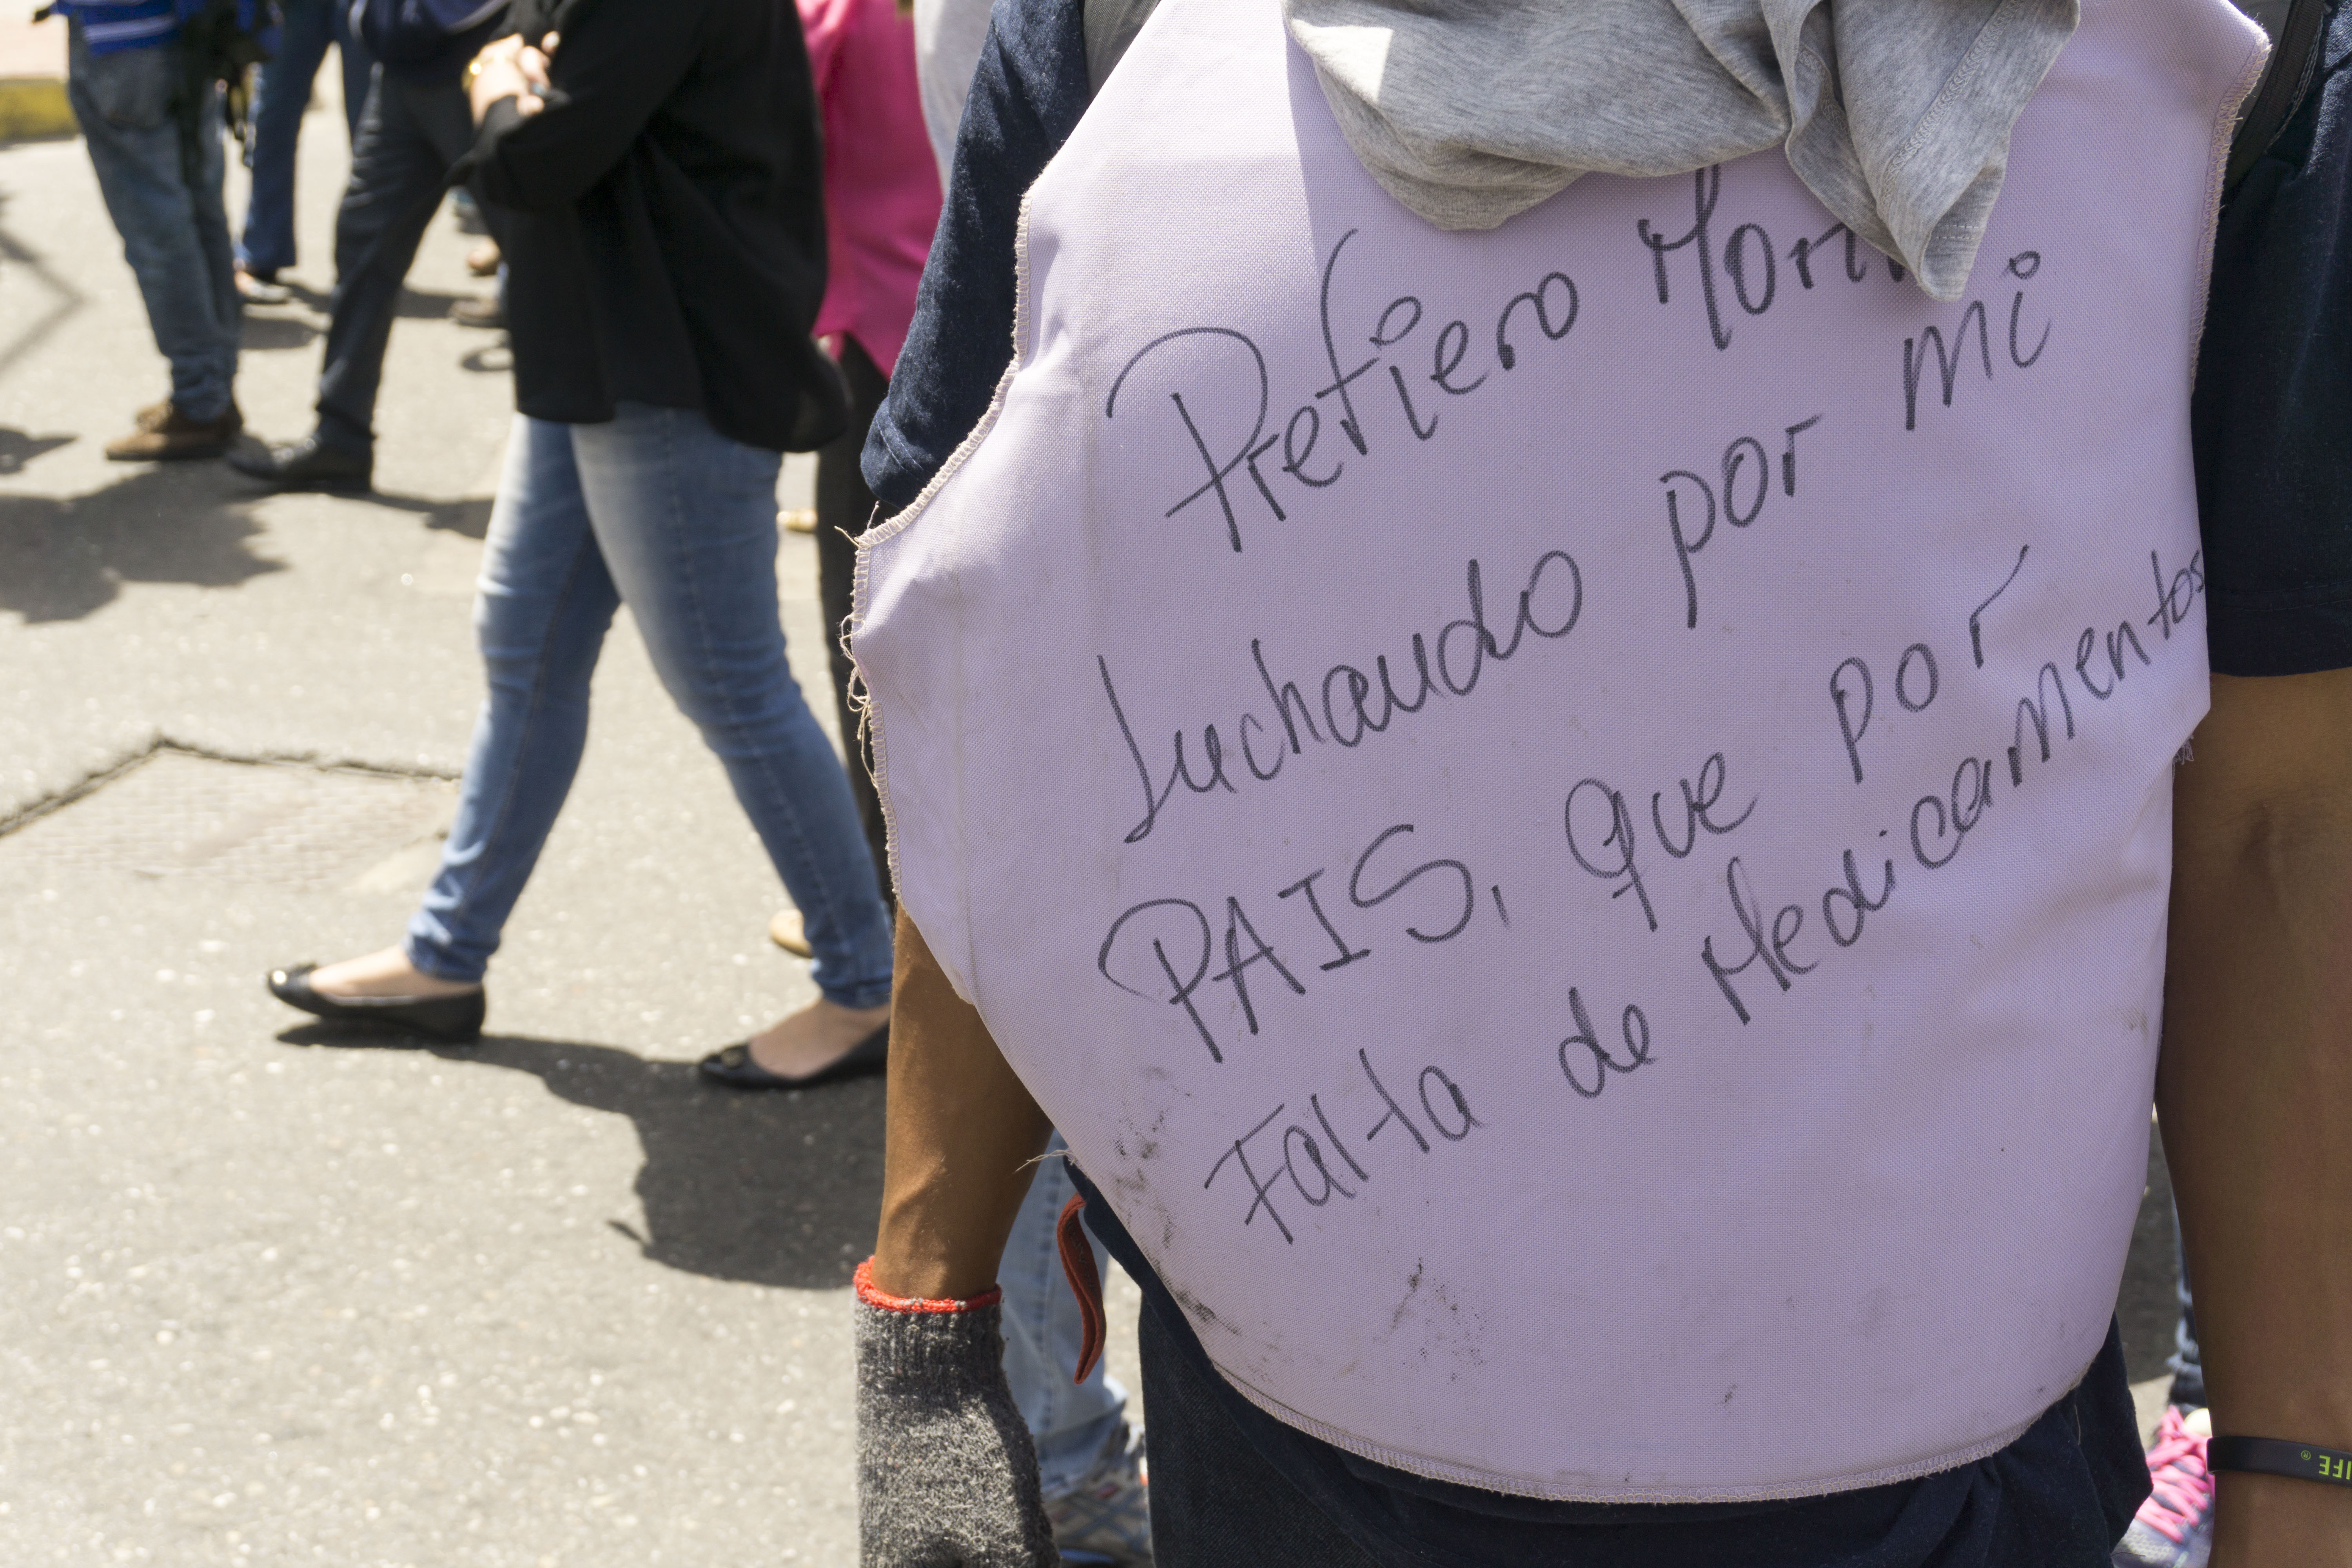 Prefiero Morir
Luchando por mi
PAIS, que por
Falta de Medicamentos
IFE